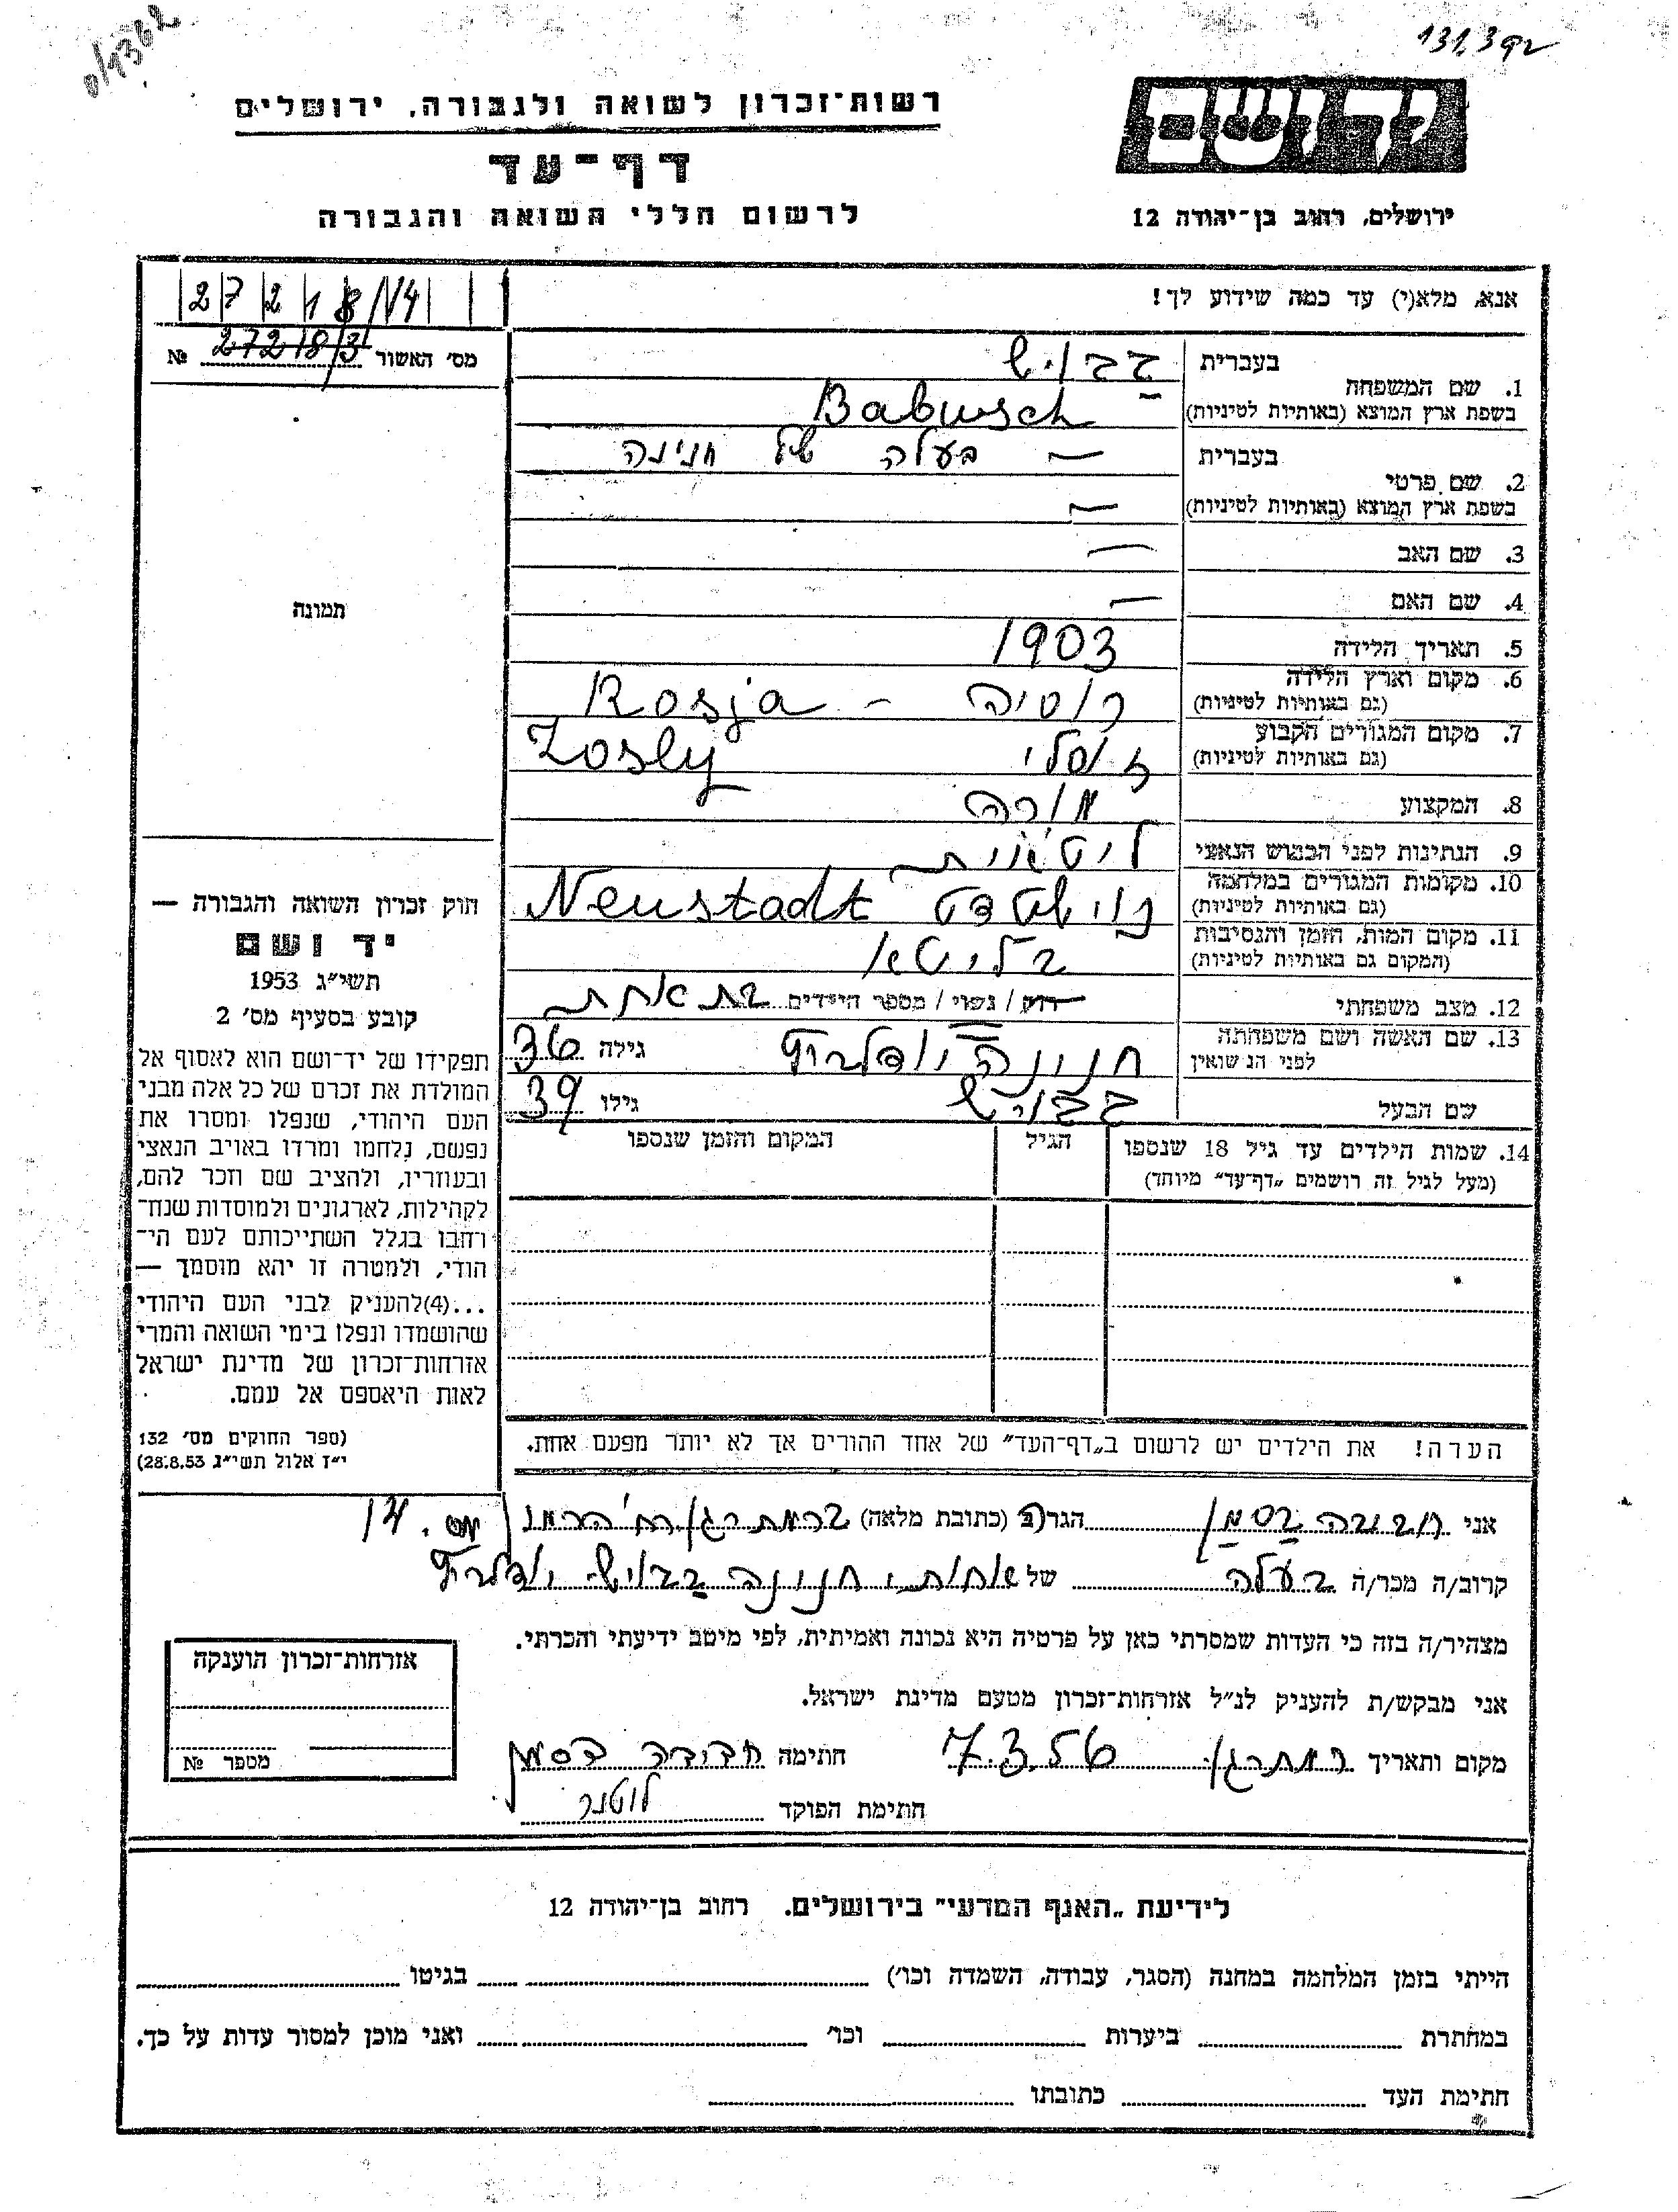 רף 131.3
0/1362
יד ושם
רשות־זכרון לשואה ולגבורה, ירושלים
דף־עד
ירושלים, רחוב בן־יהודה 12
לרשום חללי השואה והגבורה
אנא, מלא(י) עד כמה שידוע לך!
27218/14
מס׳ האשור 27218/3 №
1. שם המשפחה
בעברית בבויש
בשפת ארץ המוצא (באותיות לטיניות) Babusch
2. שם פרטי
בעברית — בעלה של חנינה
בשפת ארץ המוצא (באותיות לטיניות) —
3. שם האב —
4. שם האם —
5. תאריך הלידה 1903
6. מקום וארץ הלידה
(גם באותיות לטיניות) רוסיה - Rosja
7. מקום המגורים הקבוע
(גם באותיות לטיניות) זוסלי Zosly
8. המקצוע מורה
9. הנתינות לפני הכבוש הנאצי ליטאית
10. מקומות המגורים במלחמה
(גם באותיות לטיניות) נוישטדט Neustadt
11. מקום המות, הזמן והנסיבות
(המקום גם באותיות לטיניות) בליטא
12. מצב משפחתי רוק / נשוי / מספר הילדים בת אחת
13. שם האשה ושם משפחתה
לפני הנישואין גילה 36
שם הבעל בבויש גילו 39
14. שמות הילדים עד גיל 18 שנספו
(מעל לגיל זה רושמים „דף־עד" מיוחד)
הגיל
המקום והזמן שנספו
הערה! את הילדים יש לרשום ב„דף־העד" של אחד ההורים אך לא יותר מפעם אחת.
תמונה
חוק זכרון השואה והגבורה —
יד ושם
תשי״ג 1953
קובע בסעיף מס׳ 2
תפקידו של יד־ושם הוא לאסוף אל
המולדת את זכרם של כל אלה מבני
העם היהודי, שנפלו ומסרו את
נפשם, נלחמו ומרדו באויב הנאצי
ובעוזריו, ולהציב שם וזכר להם,
לקהילות, לארגונים ולמוסדות שנח־
רבו בגלל השתייכותם לעם הי־
הודי, ולמטרה זו יהא מוסמך —
...(4)להעניק לבני העם היהודי
שהושמדו ונפלו בימי השואה והמרי
אזרחות־זכרון של מדינת ישראל
לאות היאספם אל עמם.
(ספר החוקים מס׳ 132
י״ז אלול תשי״ג 28.8.53)
אני חביבה בסמן הגר/ה (כתובת מלאה) ברמת גן
קרוב/ה מכר/ה בעלה של אחותי חנינה בבויש
מצהיר/ה בזה כי העדות שמסרתי כאן על פרטיה היא נכונה ואמיתית, לפי מיטב ידיעתי והכרתי.
אני מבקש/ת להעניק לנ״ל אזרחות־זכרון מטעם מדינת ישראל.
מקום ותאריך רמת גן 7.3.56 חתימה חביבה בסמן
חתימת הפוקד
אזרחות־זכרון הוענקה
מספר №
לידיעת „האגף המדעי" בירושלים. רחוב בן־יהודה 12
הייתי בזמן המלחמה במחנה (הסגר, עבודה, השמדה וכו׳) בגיטו
במחתרת ביערות וכו׳ ואני מוכן למסור עדות על כך.
חתימת העד כתובתו